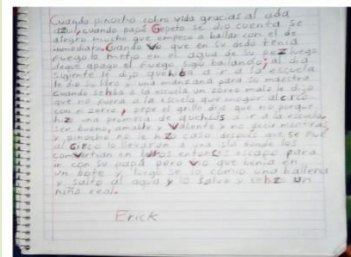 Cuando pinocho cobro vida gracias al ada
azul, cuando papa Gepeto se dio cuenta se
alegro mucho que empeso a bailar con el de
inmediato, Cuando vio que en su dedo tenia
fuego lo metio en el agua de su pez luego
de apagar el fuego siguio bailando, al dia
sigiente le dijo que iba a ir a la escuela
le dio su libro y una manzana para su maestra
Cuando iba a la escuela un zorro malo le dijo
que no fuera a la escuela que mejor al circo
con el zorro, pepe el grillo dijo que no porque
hiz una promesa de ir a la escuela
ser bueno, amable y valiente y no decir mentiras
y pinocho no hiz caso despues que se fue
al circo lo llevaron a una isla donde los
convertian en burros entonces escapo para
ir con su papa pero vio que benia en
un bote y luego se lo comio una ballena
y salto al agua y lo salvo y se hiz un
niño real.
Erick